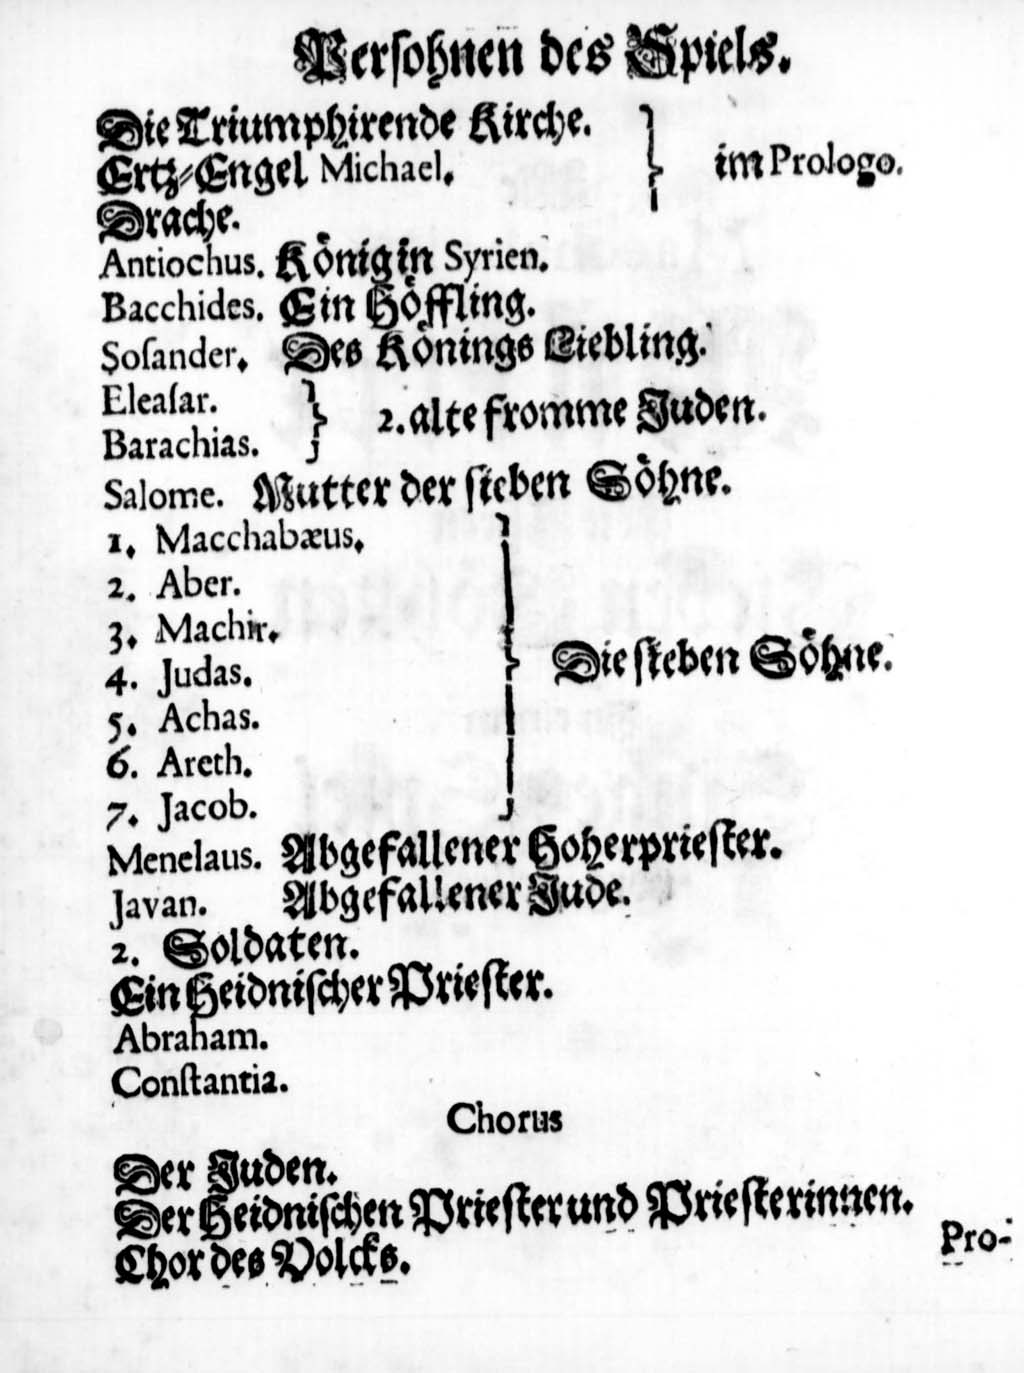 Persohnen des Spiels.
Die Triumphirende Kirche.
Ertz-Engel Michael. } im Prologo.
Drache.
Antiochus. König in Syrien.
Bacchides. Ein Höffling.
Soſander. Des Königs Liebling.
Eleaſar.
} 2. alte fromme Juden.
Barachias.
Salome. Mutter der ſieben Söhne.
1. Macchabæus.
2. Aber.
3. Machir.
4. Judas. } Die ſieben Söhne.
5. Achas.
6. Areth.
7. Jacob.
Menelaus. Abgefallener Hoherprieſter.
Javan. Abgefallener Jude.
2. Soldaten.
Ein Heidniſcher Prieſter.
Abraham.
Conſtantia.
Chorus
Der Juden.
Der Heidniſchen Prieſter und Prieſterinnen.
Chor des Volcks.
Pro-